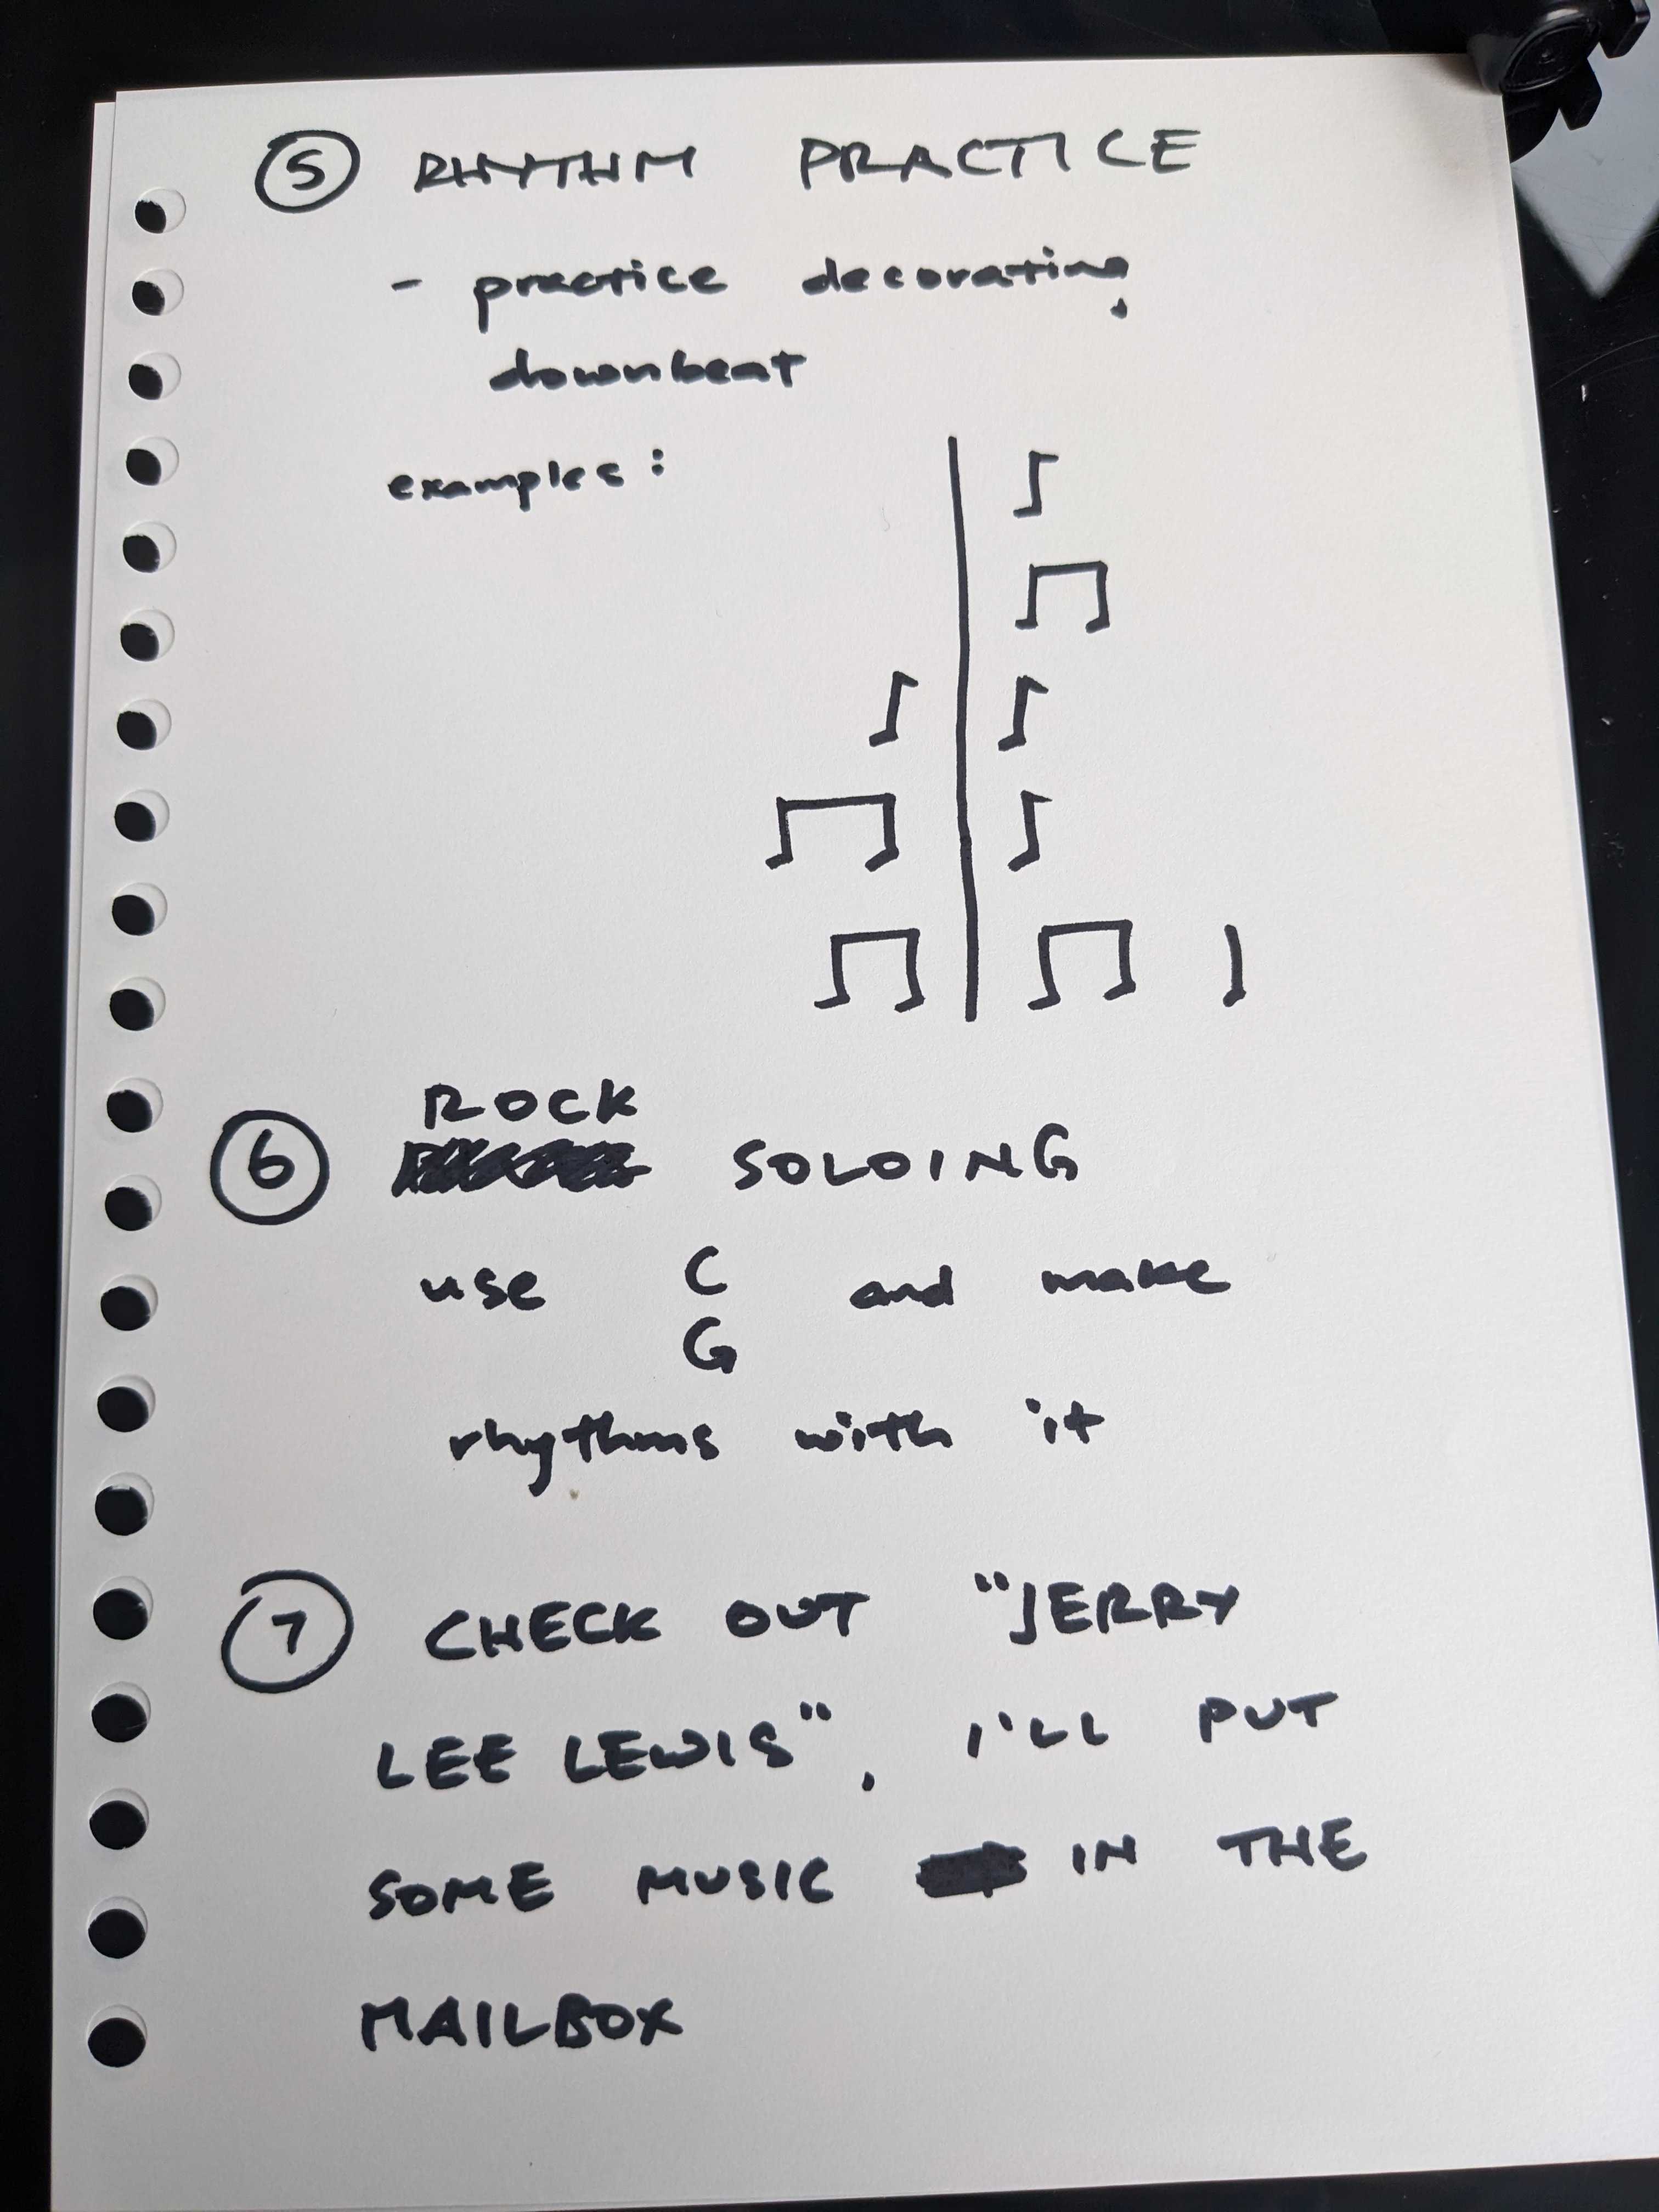 5 RHYTHM PRACTICE
- practice decorating
downbeat
examples:
ROCK
6 SOLOING
use C and make
G
rhythms with it
7 CHECK OUT "JERRY
LEE LEWIS". I'LL PUT
SOME MUSIC IN THE
MAILBOX